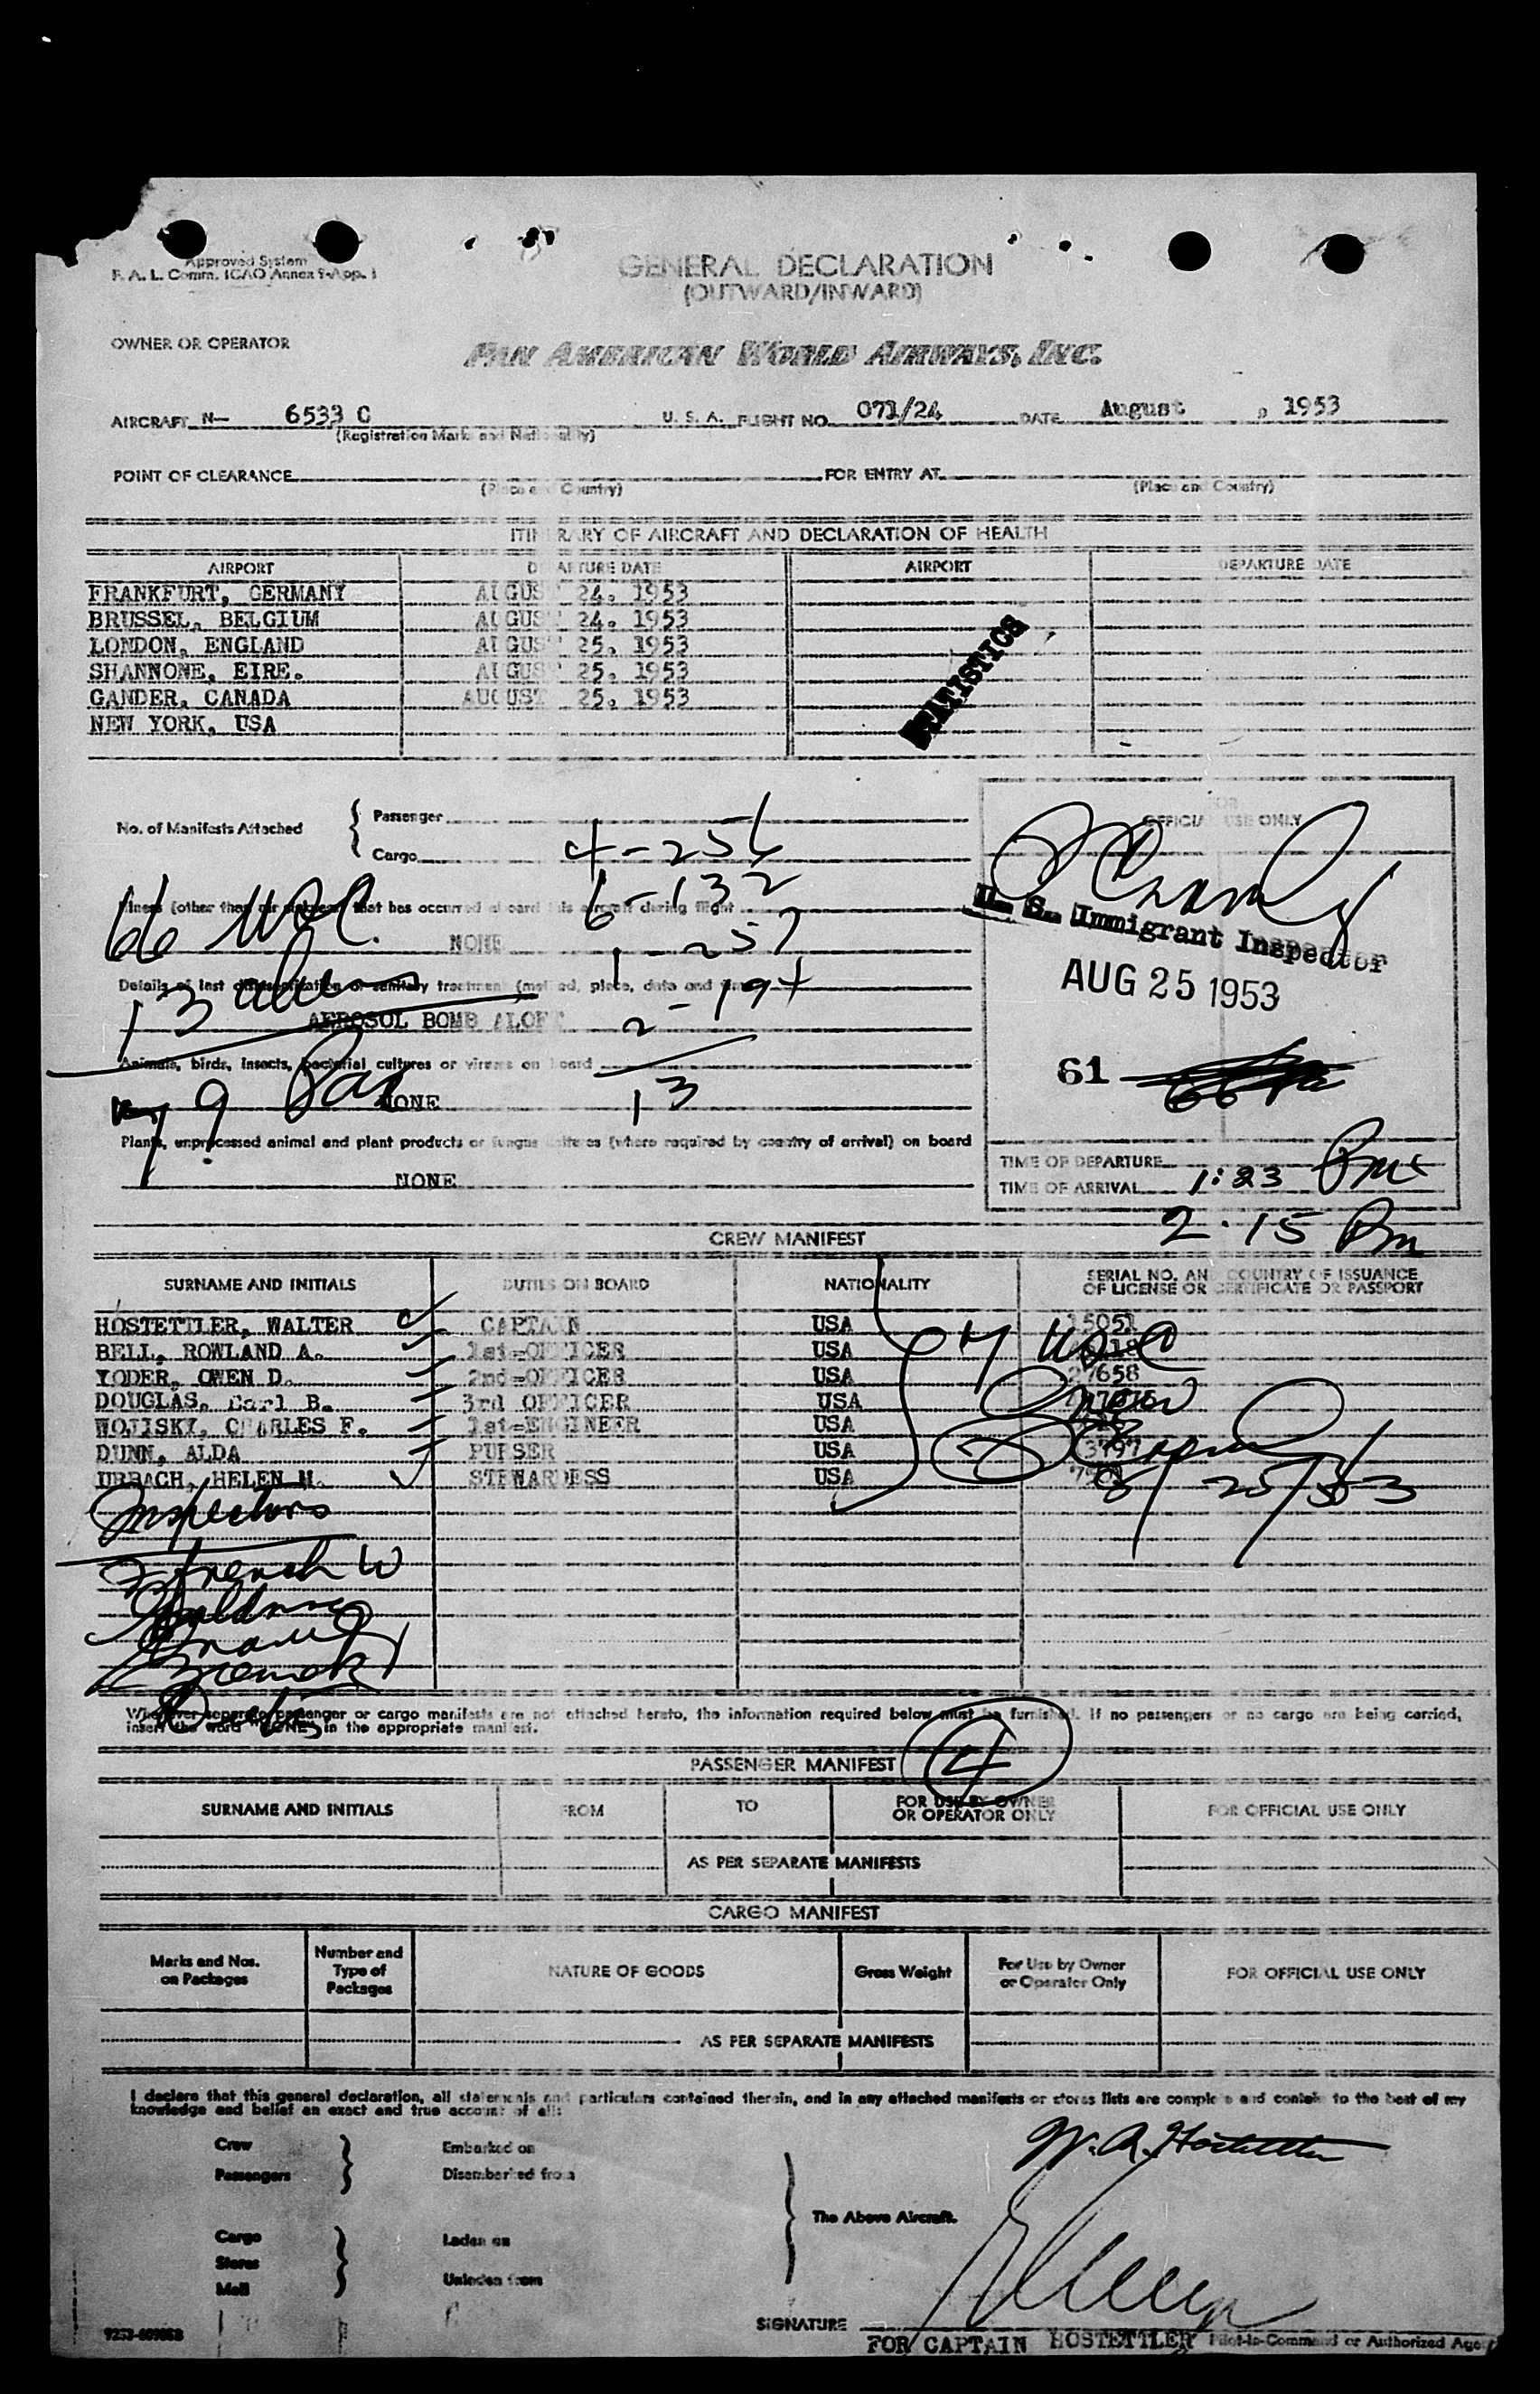 Approved System
F. A. L. Comm. ICAO Annex 9-App. 1
GENERAL DECLARATION
(OUTWARD/INWARD)
OWNER OR OPERATOR
PAN AMERICAN WORLD AIRWAYS, INC.
AIRCRAFT N— 6533 C U. S. A. FLIGHT NO. 071/24 DATE August 1953
(Registration Marks and Nationality)
POINT OF CLEARANCE FOR ENTRY AT
(Place and Country) (Place and Country)
ITINERARY OF AIRCRAFT AND DECLARATION OF HEALTH
AIRPORT DEPARTURE DATE AIRPORT DEPARTURE DATE
FRANKFURT, GERMANY AUGUST 24, 1953
BRUSSEL, BELGIUM AUGUST 24, 1953
LONDON, ENGLAND AUGUST 25, 1953
SHANNONE, EIRE. AUGUST 25, 1953
GANDER, CANADA AUGUST 25, 1953
NEW YORK, USA
STATISTICS
No. of Manifests Attached { Passenger
Cargo
4-256
FOR OFFICIAL USE ONLY
Illness (other than air sickness) that has occurred aboard this aircraft during flight
6-132
66 USC.
NONE
1-257
U. S. Immigrant Inspector
AUG 25 1953
Details of last disinsectization or sanitary treatment (method, place, date and time)
13 aliens
AEROSOL BOMB ALOFT
2-194
Animals, birds, insects, bacterial cultures or viruses on board
61
79 Pax
NONE
13
Plants, unprocessed animal and plant products or fungus cultures (where required by country of arrival) on board
NONE
TIME OF DEPARTURE
TIME OF ARRIVAL 1:23 Pm
2:15 Pm
CREW MANIFEST
SURNAME AND INITIALS DUTIES ON BOARD NATIONALITY SERIAL NO. AND COUNTRY OF ISSUANCE OF LICENSE OR CERTIFICATE OR PASSPORT
HOSTETTLER, WALTER CAPTAIN USA 15051
BELL, ROWLAND A. 1st-OFFICER USA
YODER, OWEN D. 2nd-OFFICER USA 27658
DOUGLAS, Earl B. 3rd OFFICER USA
WOJISKI, CHARLES F. 1st-ENGINEER USA
DUNN, ALDA PURSER USA
URBACH, HELEN M. STEWARDESS USA
7 USC
Crew
8/25/53
Inspectors
French W
Whenever separate passenger or cargo manifests are not attached hereto, the information required below must be furnished. If no passengers or no cargo are being carried,
insert the word "NONE" in the appropriate manifest.
4
PASSENGER MANIFEST
SURNAME AND INITIALS FROM TO FOR USE BY OWNER OR OPERATOR ONLY FOR OFFICIAL USE ONLY
AS PER SEPARATE MANIFESTS
CARGO MANIFEST
Marks and Nos. on Packages Number and Type of Packages NATURE OF GOODS Gross Weight For Use by Owner or Operator Only FOR OFFICIAL USE ONLY
AS PER SEPARATE MANIFESTS
I declare that this general declaration, all statements and particulars contained therein, and in any attached manifests or stores lists are complete and contain to the best of my
knowledge and belief an exact and true account of all:
W. A. Hostettler
Crew Embarked on
Passengers Disembarked from
The Above Aircraft.
Cargo Laden on
Stores
Mail Unladen from
SIGNATURE
FOR CAPTAIN HOSTETTLER Pilot-in-Command or Authorized Agent